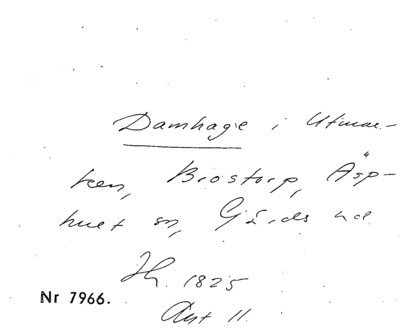 Damhage i Utmar-
ken, Brostorp, Äsp-
huet sn, Gärds hd
Jh. 1825
Nr 7966.
Akt 11.